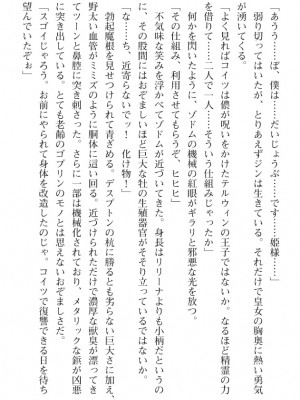 「あうう……ぼ、僕は……だいじょうぶ……です……姫様……」
　弱り切ってはいたが、とりあえずジンは生きている。それだけで皇女の胸奥に熱い勇気
が湧いてくる。
「よく見ればコイツは儂が呪いをかけたデルウィンの王子ではないか。なるほど精霊の力
を借りて……二人で一人……そういう仕組みじゃったか」
　何かを閃いたように、ゾドムの機械の紅眼がギラリと邪悪な光を放つ。
「その仕組み、利用させてもらうぞ、ヒヒヒ」
　不気味な笑みを浮かべてゾドムが近づいてきた。身長はリリーナよりも小柄だというの
に、その股間にはおぞましいほど巨大な牡の生殖器官がそそり立っているではないか。
「な……ち、近寄らないでッ！　化け物！」
　勃起魔根を見せつけられて青ざめる。デスプトンの杭に勝るとも劣らない巨大さに加え、
野太い血管がミミズのように胴体に這い回る。近づけられただけで濃厚な獣臭が漂ってき
てツーンと鼻腔に突き刺さった。さらに一部は機械化されており、メタリックな鋲が凶悪
に突き出している。とても老齢のゴブリンのモノとは思えないおぞましさだ。
「スゴイじゃろう。お前にやられて身体を改造したのじゃ。コイツで復讐できる日を待ち
望んでいたぞぉ」